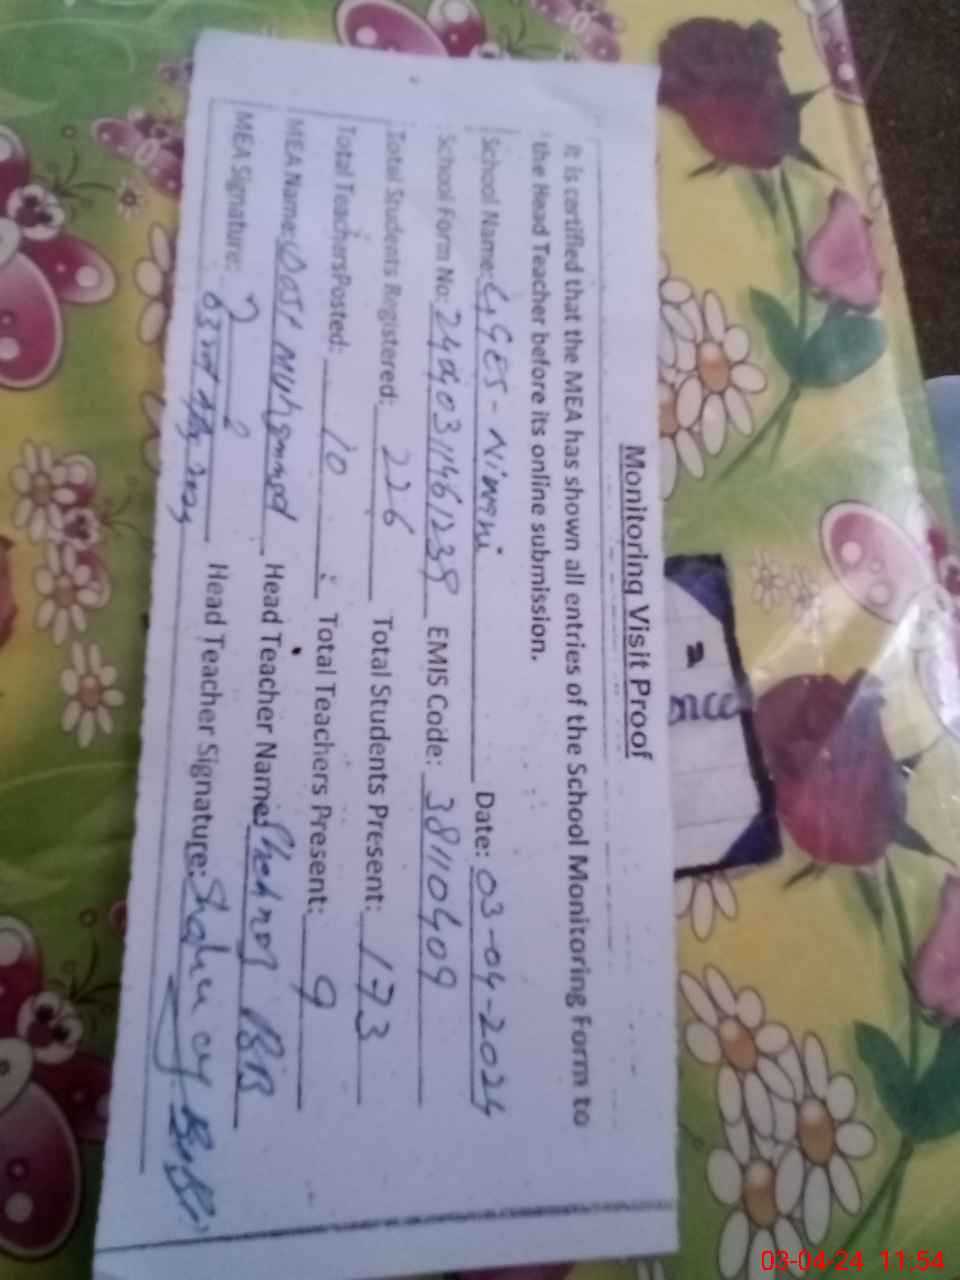 Monitoring Visit Proof
It is certified that the MEA has shown all entries of the School Monitoring Form to
the Head Teacher before its online submission.
School Name: GGES - Nimani Date: 03-04-2024
School Form No: EMIS Code: 38110409
Total Students Registered: 226 Total Students Present: 173
Total Teachers Posted: 10 Total Teachers Present: 9
MEA Name: Dost Muhammad Head Teacher Name: BiBi
MEA Signature: Head Teacher Signature: BiBi
2
ence
03-04-24 11:54